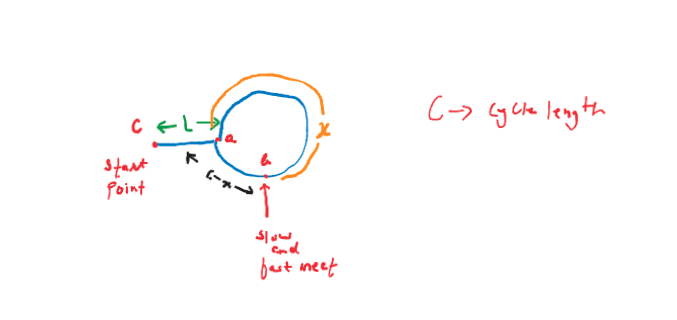 C
L
a
start
point
x
b
C-x
slow
and
fast meet
C → cycle length